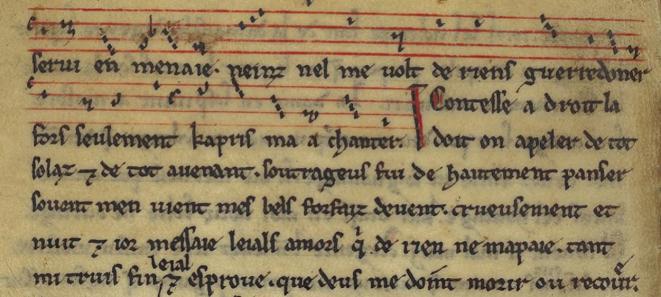 serui en menaie. peinz nel me uolt de riens guerredoner
fors seulement kapris ma a chanter. I Contesse a droit la
doit on apeler de tot
solaz ⁊ de tot auenant. soutrageus fui de hautement panser
souent men uient mes bels forfaiz deuent. crueusement et
nuit ⁊ ior messaie leials amors q̃ de rien ne mapaie. tant
mi truis fin leial ⁊ esproue. que deus me doint morir ou recour̃.